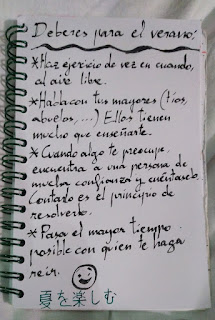 Deberes para el verano:
*Haz ejercicio de vez en cuando,
al aire libre.
*Habla con tus mayores (tíos,
abuelos,...) Ellos tienen
mucho que enseñarte.
*Cuando algo te preocupe,
encuentra a una persona de
mucha confianza y cuéntaselo.
Contarlo es el principio de
resolverlo.
*Pasa el mayor tiempo
posible con quien te haga
reír.
夏を楽しむ